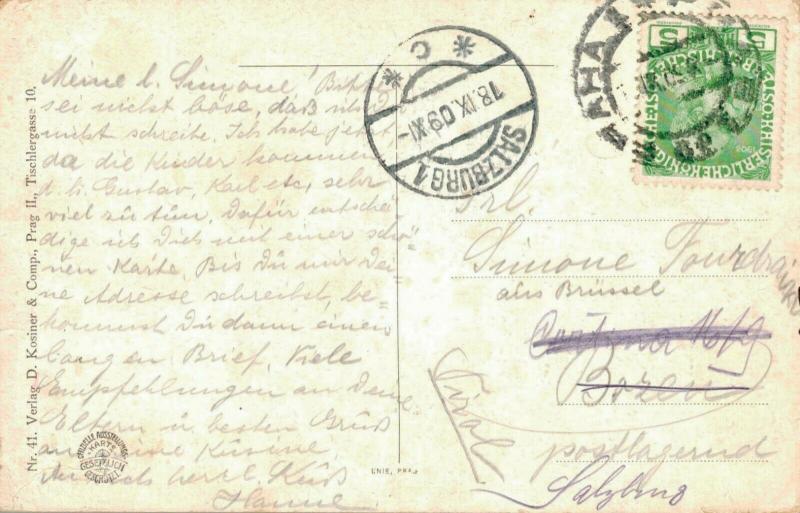 Nr. 41. Verlag D. Kosiner & Comp., Prag II., Tischlergasse 10.
Meine l. Simone! Bitte
sei nicht böse, daß ich Dir
nicht schreibe. Ich habe jetzt
da die Kinder kommen
d. h. Gustav, Karl etc, sehr
viel zu tun. Dafür entschä-
dige ich Dich mit einer schö-
nen Karte. Bis Du mir Dei-
ne Adresse schreibst, be-
kommst Du dann einen
langen Brief. Viele
Empfehlungen an Deine
Eltern u. besten Gruß
an Deine Kusine.
herzl. Kuß
Hanne
OFFIZIELLE AUSSTELLUNGS-
KARTE
GESETZLICH
GESCHÜTZT
UNIE, PRAG
SALZBURG 1
18.IX.09.XI-
* C *
PRAHA
5 5
1908
Frl.
Simone
aus Brüssel
Bozen
postlagernd
Tirol
Salzburg